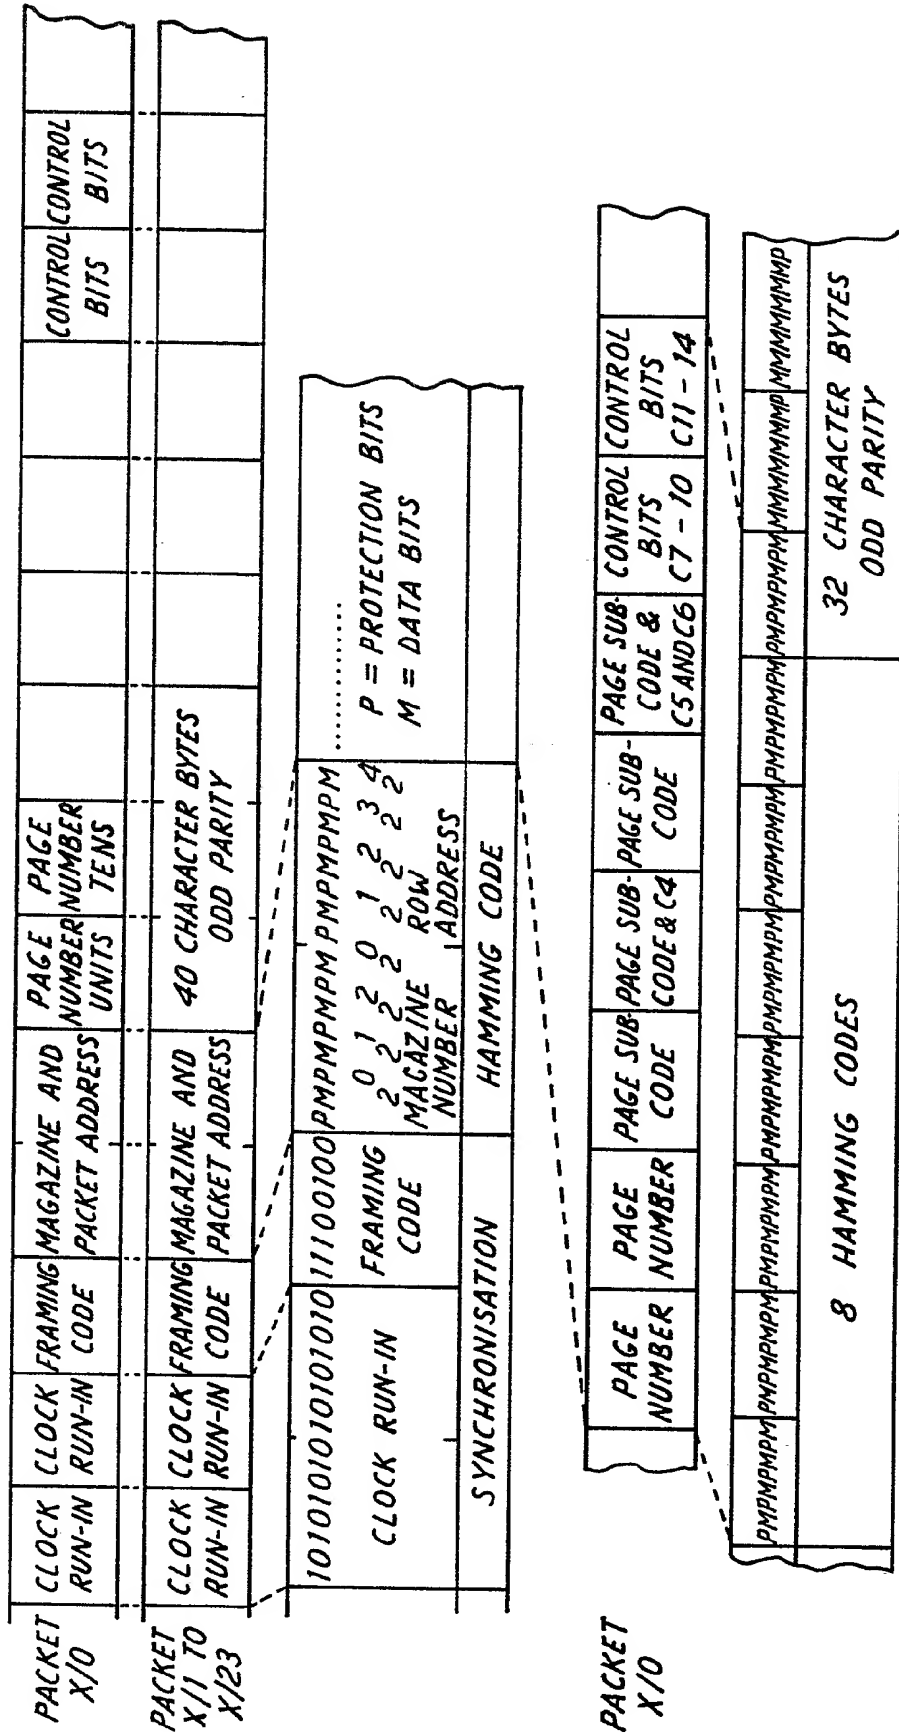 PACKET
X/0
CLOCK
RUN-IN
CLOCK
RUN-IN
FRAMING
CODE
MAGAZINE AND
PACKET ADDRESS
PAGE
NUMBER
UNITS
PAGE
NUMBER
TENS
CONTROL
BITS
CONTROL
BITS
PACKET
X/1 TO
X/23
CLOCK
RUN-IN
CLOCK
RUN-IN
FRAMING
CODE
MAGAZINE AND
PACKET ADDRESS
40 CHARACTER BYTES
ODD PARITY
1010101010101010
CLOCK RUN-IN
11100100
FRAMING
CODE
PMPMPMPM PMPMPMPM
2⁰ 2¹ 2² 2⁰ 2¹ 2² 2³ 2⁴
MAGAZINE
NUMBER
ROW
ADDRESS
............
P = PROTECTION BITS
M = DATA BITS
SYNCHRONISATION
HAMMING CODE
PACKET
X/0
PAGE
NUMBER
PAGE
NUMBER
PAGE SUB-
CODE
PAGE SUB-
CODE & C4
PAGE SUB-
CODE
PAGE SUB-
CODE &
C5 AND C6
CONTROL
BITS
C7 - 10
CONTROL
BITS
C11 - 14
PMPMPMPM PMPMPMPM PMPMPMPM PMPMPMPM PMPMPMPM PMPMPMPM PMPMPMPM PMPMPMPM MMMMMMMP MMMMMMMP
8 HAMMING CODES
32 CHARACTER BYTES
ODD PARITY